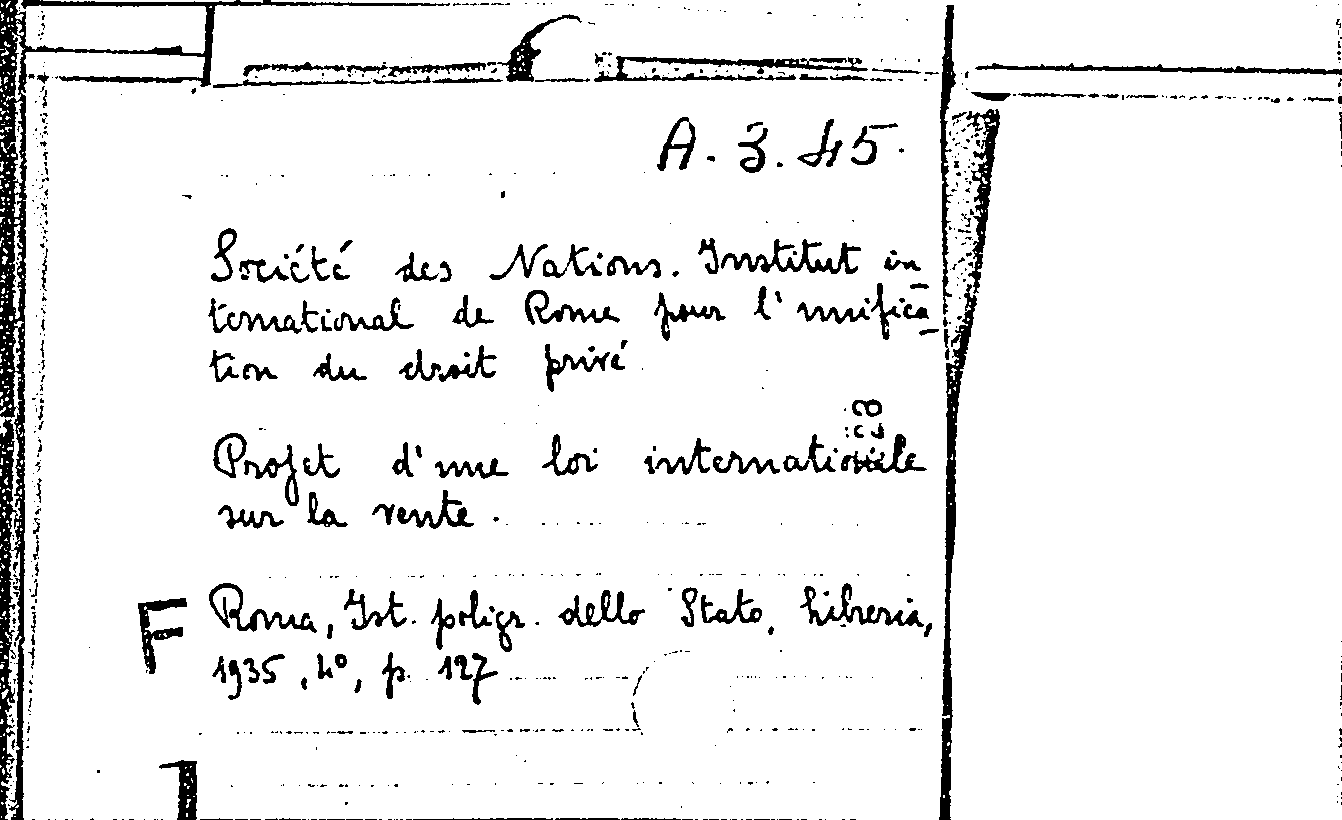 A. 3. 45.
Société des Nations. Institut in
ternational de Rome pour l'unifica
tion du droit privé
Projet d'une loi internationale
sur la vente.
F Roma, Ist. poligr. dello Stato, Libreria,
1935, 4°, p. 127